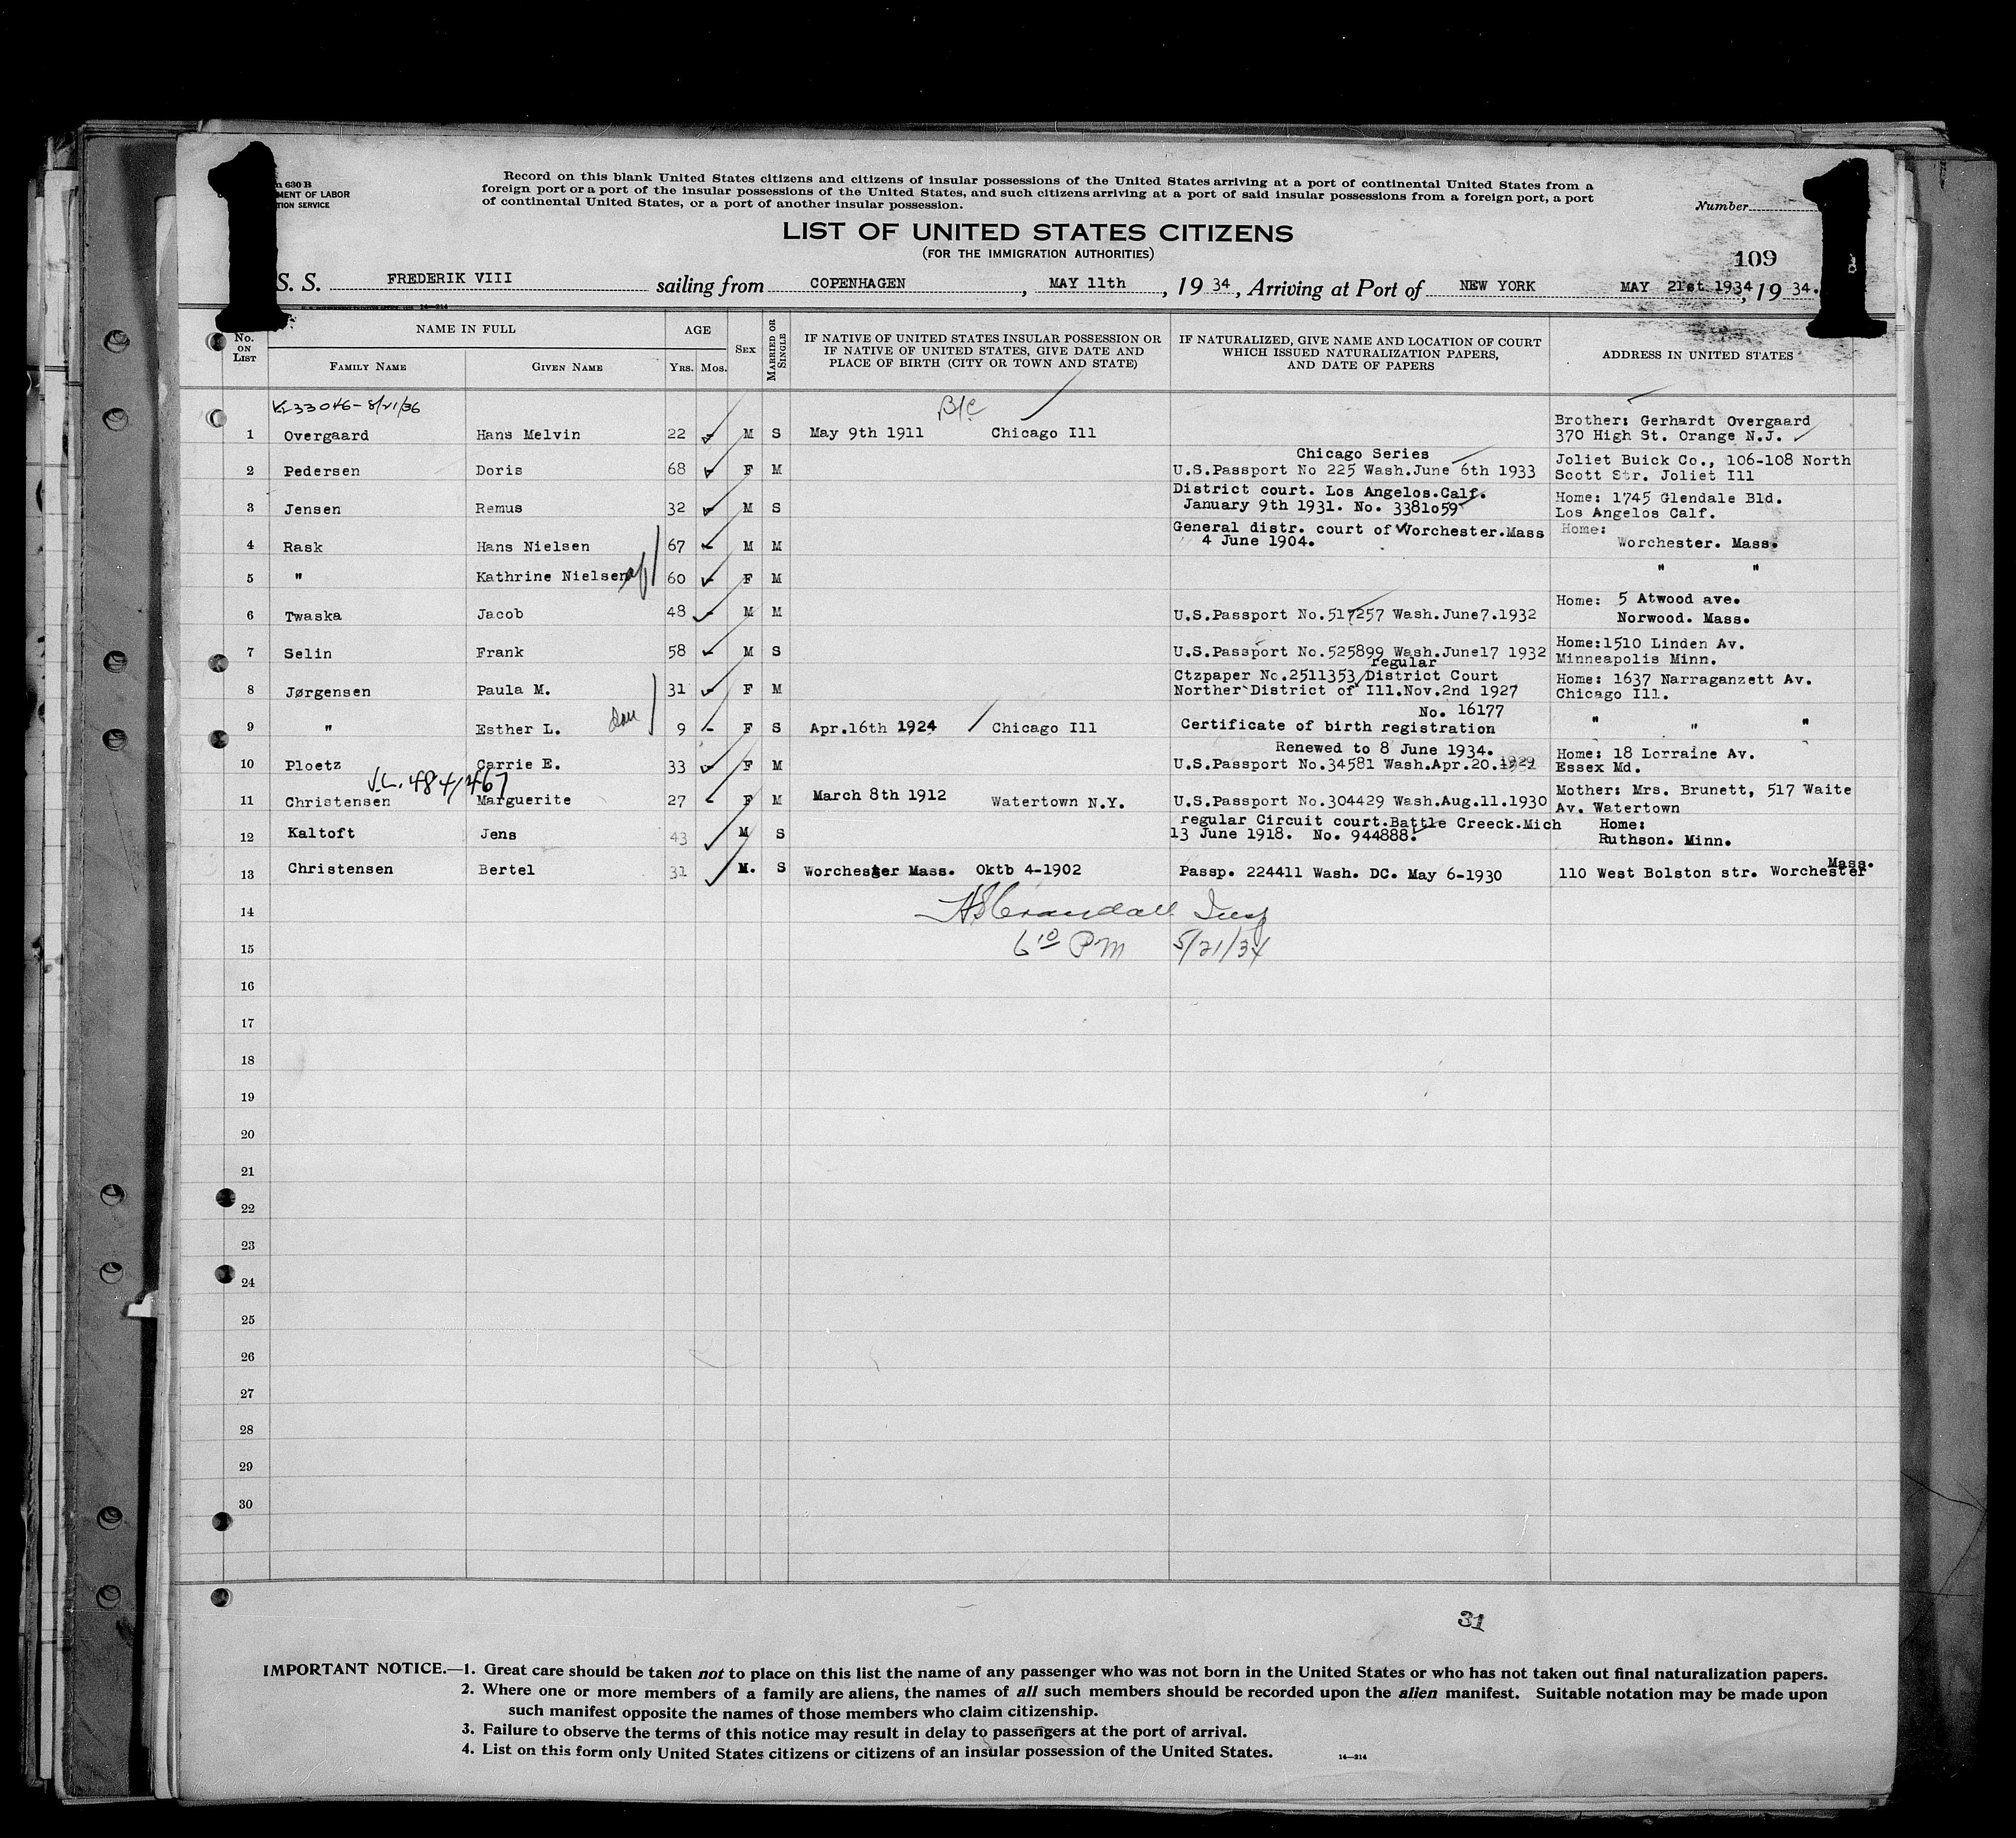 1
1
m 630 B
MENT OF LABOR
TION SERVICE
Record on this blank United States citizens and citizens of insular possessions of the United States arriving at a port of continental United States from a
foreign port or a port of the insular possessions of the United States, and such citizens arriving at a port of said insular possessions from a foreign port, a port
of continental United States, or a port of another insular possession.
Number
LIST OF UNITED STATES CITIZENS
(FOR THE IMMIGRATION AUTHORITIES)
109
S. S. FREDERIK VIII sailing from COPENHAGEN, MAY 11th, 19 34, Arriving at Port of NEW YORK MAY 21st 1934, 19 34.
No. ON LIST
NAME IN FULL
FAMILY NAME GIVEN NAME
AGE
YRS. MOS.
SEX
MARRIED OR SINGLE
IF NATIVE OF UNITED STATES INSULAR POSSESSION OR
IF NATIVE OF UNITED STATES, GIVE DATE AND
PLACE OF BIRTH (CITY OR TOWN AND STATE)
IF NATURALIZED, GIVE NAME AND LOCATION OF COURT
WHICH ISSUED NATURALIZATION PAPERS,
AND DATE OF PAPERS
ADDRESS IN UNITED STATES
33046-8/21/36 B/C
Brother: Gerhardt Overgaard
1 Overgaard Hans Melvin 22 M S May 9th 1911 Chicago Ill 370 High St. Orange N.J.
Chicago Series Joliet Buick Co., 106-108 North
2 Pedersen Doris 68 F M U.S.Passport No 225 Wash.June 6th 1933 Scott Str. Joliet Ill
District court. Los Angelos.Calf. Home: 1745 Glendale Bld.
3 Jensen Remus 32 M S January 9th 1931. No. 3381o59 Los Angelos Calf.
General distr. court of Worchester.Mass Home:
4 Rask Hans Nielsen 67 M M 4 June 1904. Worchester. Mass.
5 " Kathrine Nielsen 60 F M " "
Home: 5 Atwood ave.
6 Twaska Jacob 48 M M U.S.Passport No.517257 Wash.June7.1932 Norwood. Mass.
Home:1510 Linden Av.
7 Selin Frank 58 M S U.S.Passport No.525899 Wash.June17 1932 Minneapolis Minn.
regular
Ctzpaper No.2511353 District Court Home: 1637 Narraganzett Av.
8 Jørgensen Paula M. 31 F M Norther District of Ill.Nov.2nd 1927 Chicago Ill.
No. 16177
9 " Esther L. dau 9 F S Apr.16th 1924 Chicago Ill Certificate of birth registration " " "
Renewed to 8 June 1934. Home: 18 Lorraine Av.
10 Ploetz Carrie E. 33 F M U.S.Passport No.34581 Wash.Apr.20.1929 Essex Md.
V.L. 484/467
Mother: Mrs. Brunett, 517 Waite
11 Christensen Marguerite 27 F M March 8th 1912 Watertown N.Y. U.S.Passport No.304429 Wash.Aug.11.1930 Av. Watertown
regular Circuit court.Battle Creeck.Mich Home:
12 Kaltoft Jens 43 M S 13 June 1918. No. 944888. Ruthson. Minn.
Mass.
13 Christensen Bertel 31 M. S Worchester Mass. Oktb 4-1902 Passp. 224411 Wash. DC. May 6-1930 110 West Bolston str. Worchester
14 Crandall Insp
15 6 10 PM 5/21/34
16
17
18
19
20
21
22
23
24
25
26
27
28
29
30
31
IMPORTANT NOTICE.—1. Great care should be taken not to place on this list the name of any passenger who was not born in the United States or who has not taken out final naturalization papers.
2. Where one or more members of a family are aliens, the names of all such members should be recorded upon the alien manifest. Suitable notation may be made upon
such manifest opposite the names of those members who claim citizenship.
3. Failure to observe the terms of this notice may result in delay to passengers at the port of arrival.
4. List on this form only United States citizens or citizens of an insular possession of the United States.
14—214